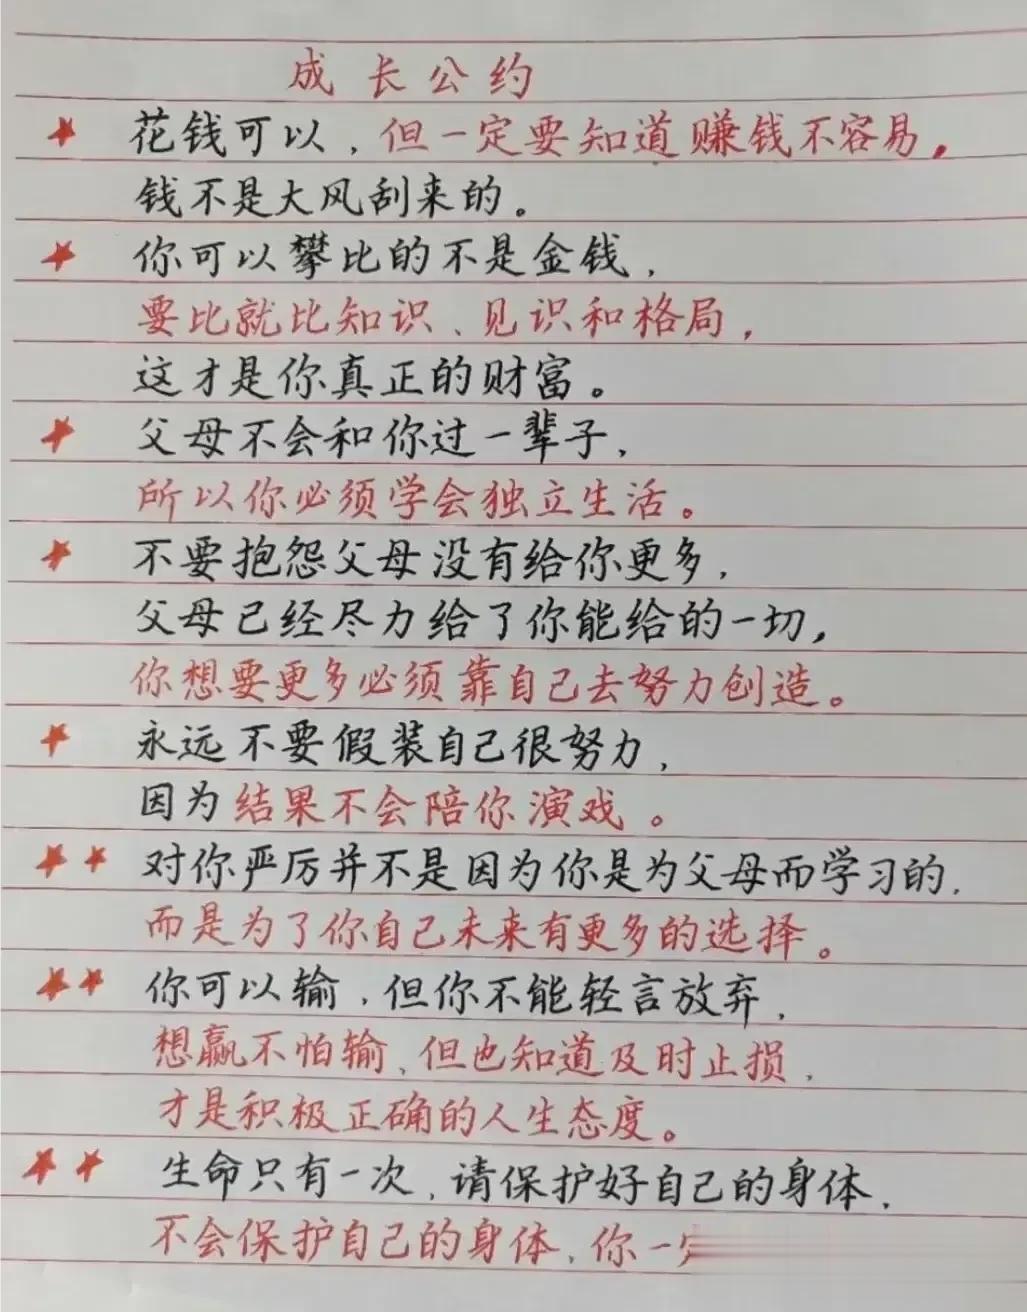 成长公约
花钱可以，但一定要知道赚钱不容易，
钱不是大风刮来的。
你可以攀比的不是金钱，
要比就比知识、见识和格局，
这才是你真正的财富。
父母不会和你过一辈子，
所以你必须学会独立生活。
不要抱怨父母没有给你更多，
父母已经尽力给了你能给的一切，
你想要更多必须靠自己去努力创造。
永远不要假装自己很努力，
因为结果不会陪你演戏。
对你严厉并不是因为你是为父母而学习的，
而是为了你自己未来有更多的选择。
你可以输，但你不能轻言放弃，
想赢不怕输，但也知道及时止损，
才是积极正确的人生态度。
生命只有一次，请保护好自己的身体，
不会保护自己的身体，你一